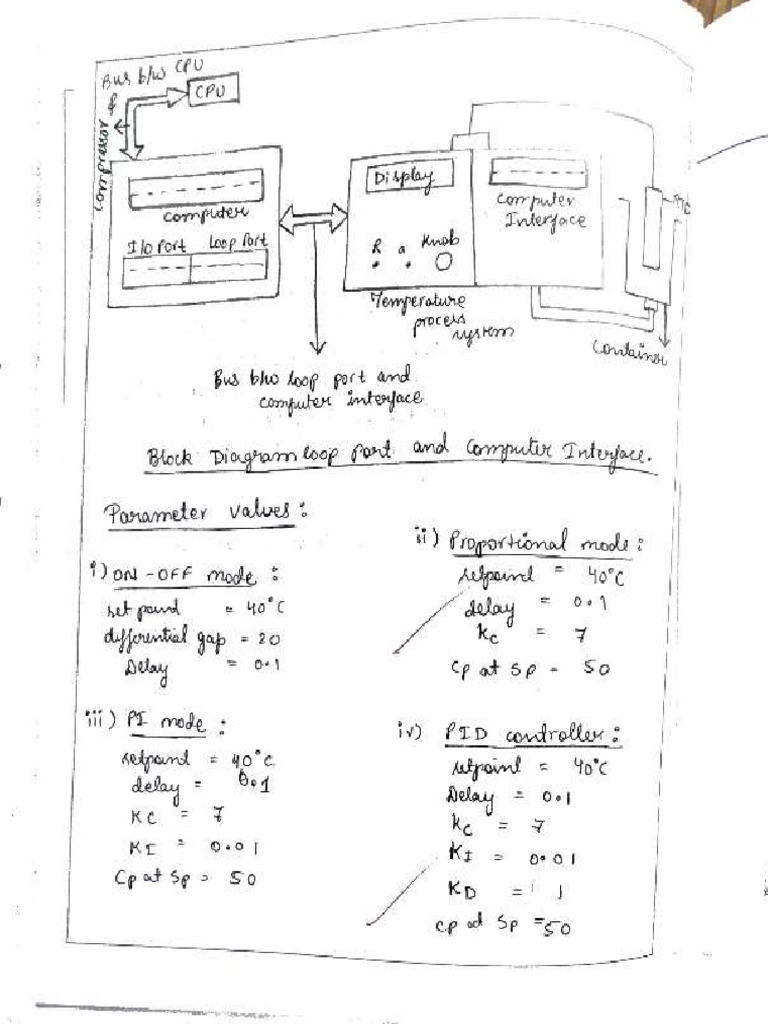 Bus b/w CPU
&
compressor
CPU
computer
I/O Port Loop Port
Display
R a Knob
computer
Interface
Temperature
process
system
Container
Bus b/w loop port and
computer interface
Block Diagram loop Port and Computer Interface.
Parameter values:
i) ON-OFF mode:
set point = 40°C
differential gap = 20
Delay = 0.1
ii) Proportional mode:
setpoint = 40°C
delay = 0.1
Kc = 7
Cp at Sp = 50
iii) PI mode:
setpoint = 40°C
delay = 0.1
KC = 7
KI = 0.01
Cp at Sp = 50
iv) PID controller:
setpoint = 40°C
Delay = 0.1
Kc = 7
KI = 0.01
KD = 1
Cp at Sp = 50